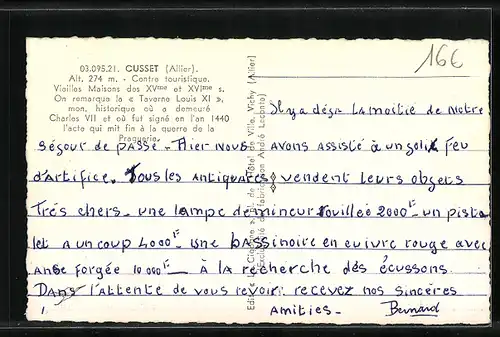 16€
03.095.21. CUSSET (Allier).
Alt. 274 m. - Centre touristique.
Vieilles Maisons des XVme et XVIme s.
On remarque la « Taverne Louis XI »,
mon. historique où a demeuré
Charles VII et où fut signé en l'an 1440
l'acte qui mit fin à la guerre de la
Praguerie.
de Ville, Vichy (Allier)
André Leconte)
Il y a déja la moitié de notre
séjour de passé - Hier nous avons assisté à un joli feu
d'artifice. Tous les antiquaires vendent leurs objets
très chers - une lampe de mineur rouillée 2000F - un pisto
let a un coup 4000F - une bassinoire en cuivre rouge avec
anse forgée 10.000F - à la recherche des écussons.
Dans l'attente de vous revoir, recevez nos sincères
Amitiés - Bernard